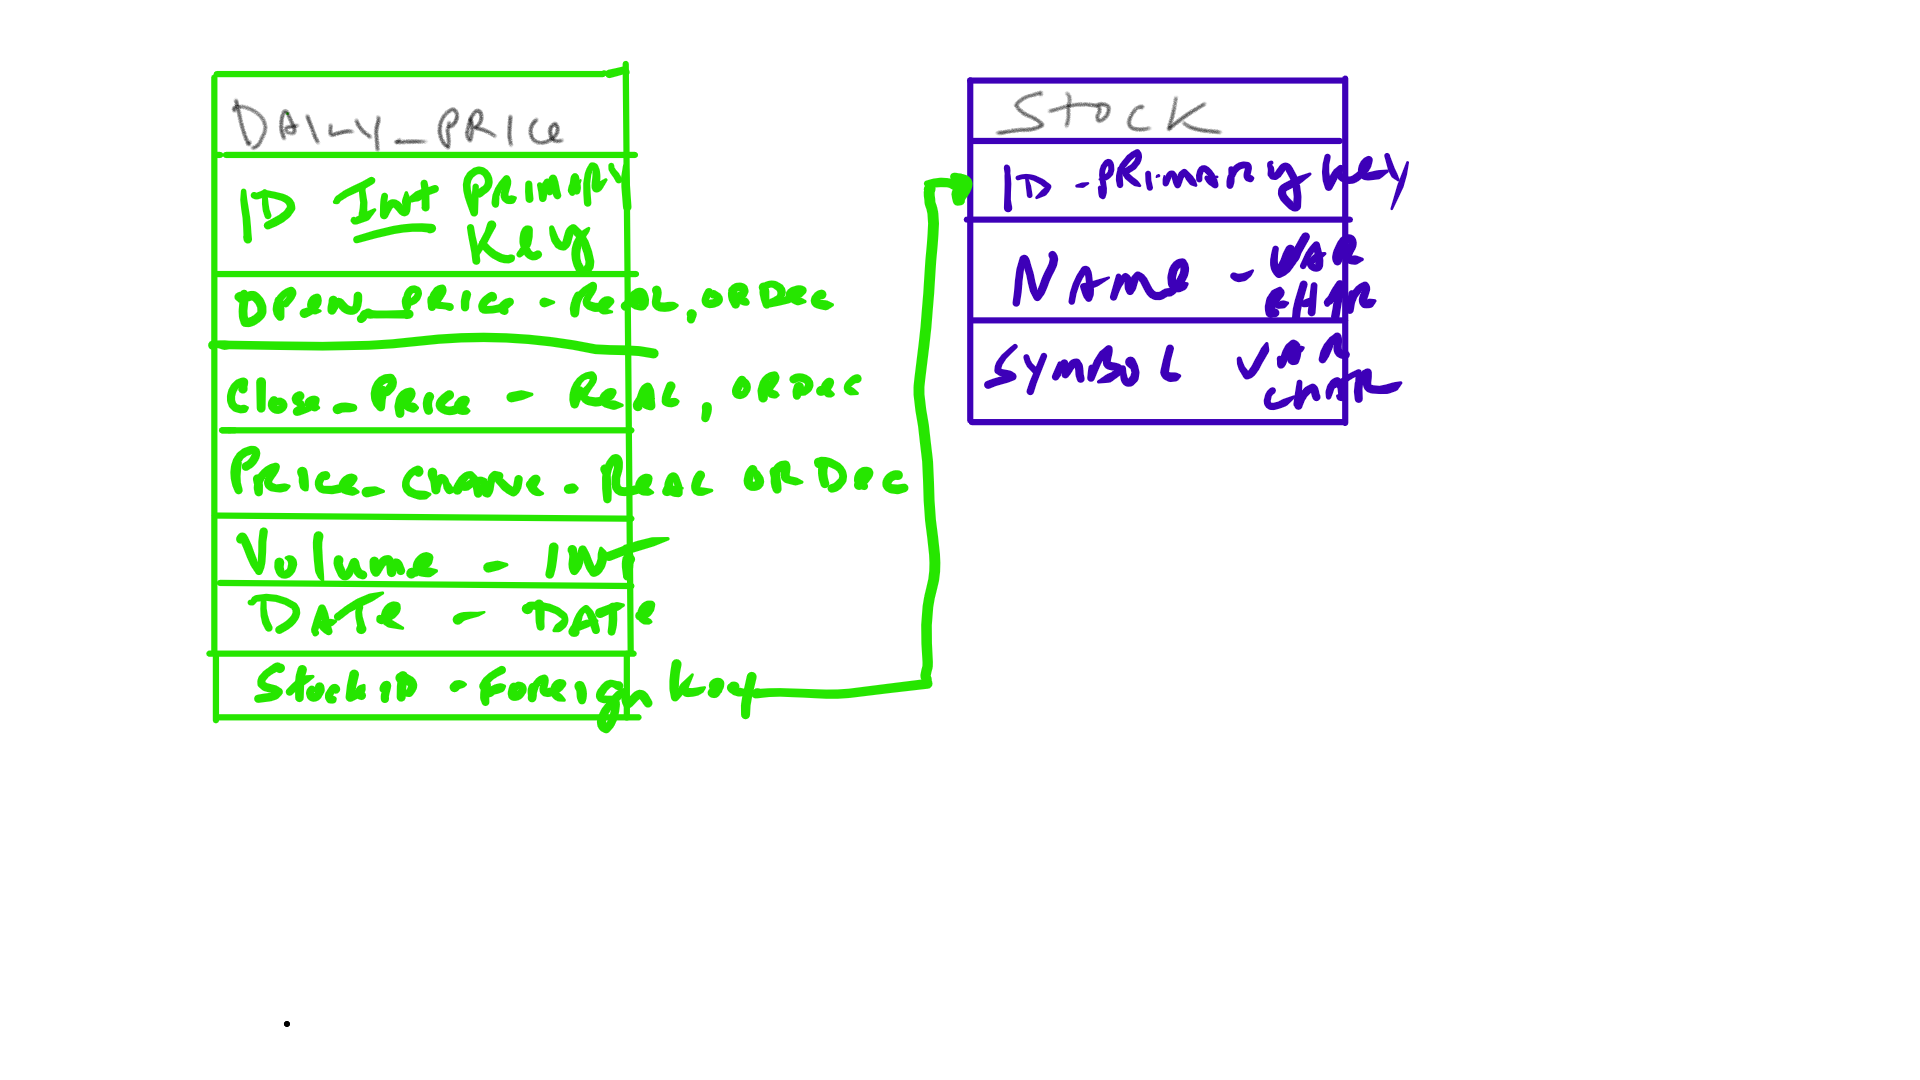 DAILY_PRICE
ID Int PRIMARY
Key
OPen_PRice - ReaL, OR Dec
Close_PRice - ReAL, OR Dec
PRice_Change - ReAL OR Dec
Volume - INT
DATe - DATe
StockID - Foreign Key
STOCK
ID - PRIMARY key
NAme - VAR
CHAR
SYmBOL VAR
CHAR